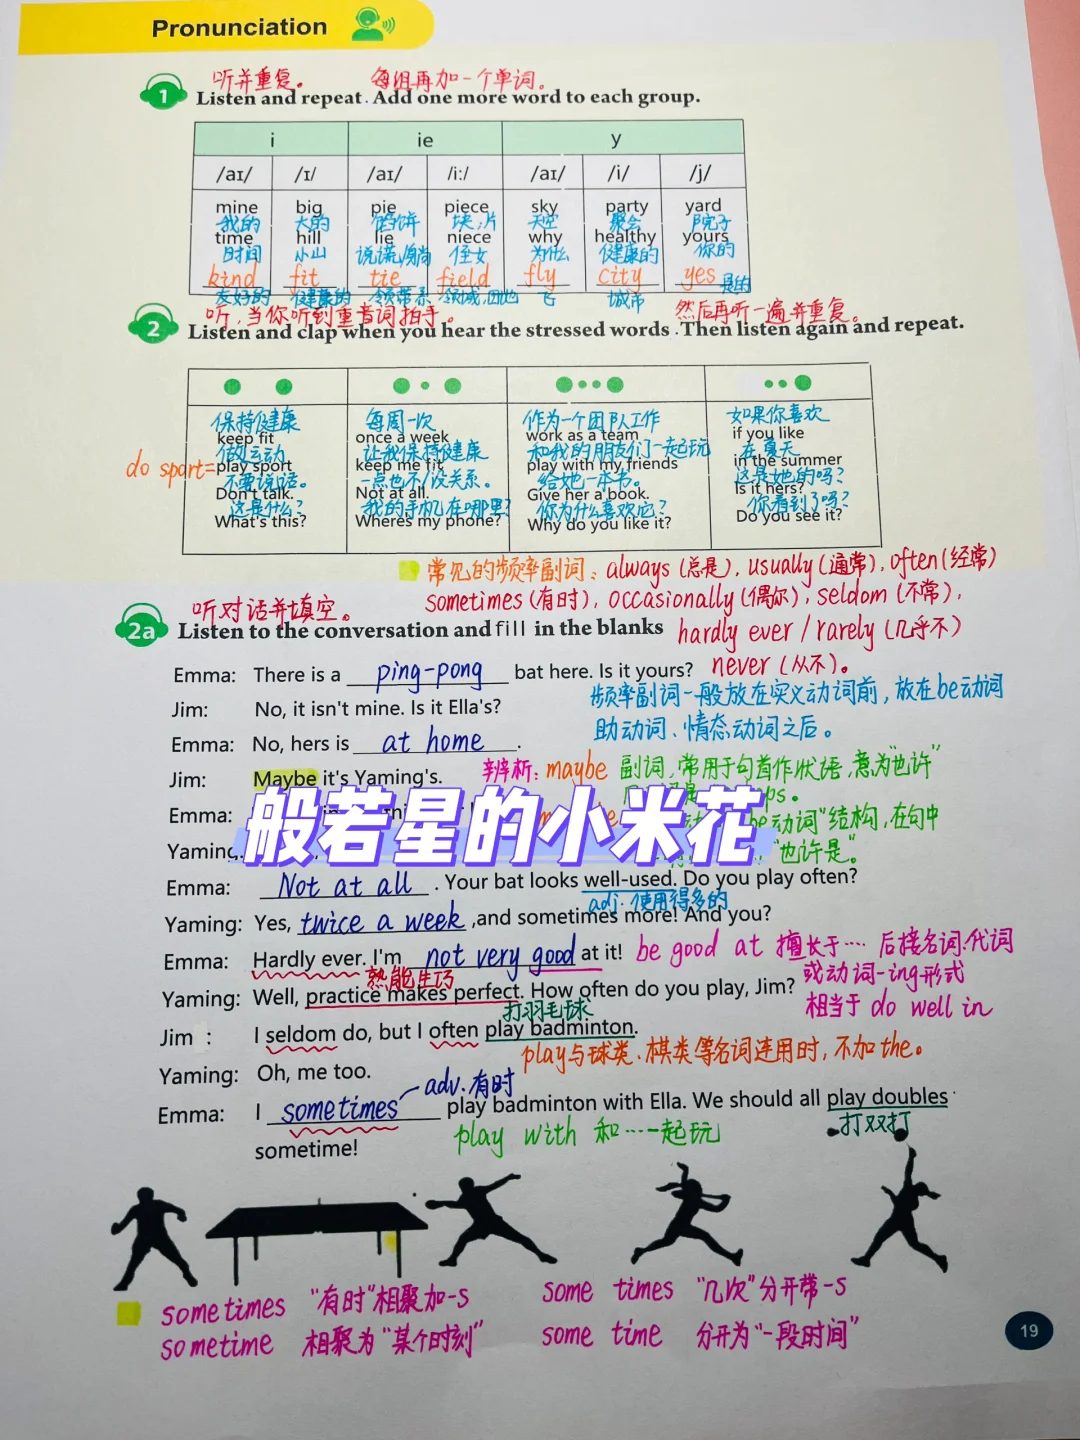 Pronunciation
听并重复。 每组再加一个单词。
1 Listen and repeat. Add one more word to each group.
i ie y
/aɪ/ /ɪ/ /aɪ/ /i:/ /aɪ/ /i/ /j/
mine big pie piece sky party yard
我的 大的 馅饼 块,片 天空 聚会 院子
time hill lie niece why healthy yours
时间 小山 说谎,躺 侄女 为什么 健康的 你的
kind fit tie field fly city yes 是的
友好的 健康的 领带,系 领域,田地 飞 城市
听,当你听到重音词拍手。 然后再听一遍并重复。
2 Listen and clap when you hear the stressed words. Then listen again and repeat.
保持健康 每周一次 作为一个团队工作 如果你喜欢
keep fit once a week work as a team if you like
做运动 让我保持健康 和我的朋友们一起玩 在夏天
do sport= play sport keep me fit play with my friends in the summer
不要说话。 一点也不/没关系。 给她一本书。 这是她的吗?
Don't talk. Not at all. Give her a book. Is it hers?
这是什么? 我的手机在哪里? 你为什么喜欢它? 你看到了吗?
What's this? Where's my phone? Why do you like it? Do you see it?
常见的频率副词: always (总是), usually (通常), often (经常)
sometimes (有时), occasionally (偶尔), seldom (不常),
hardly ever / rarely (几乎不)
never (从不)。
听对话并填空。
2a Listen to the conversation and fill in the blanks
Emma: There is a ping-pong bat here. Is it yours?
频率副词一般放在实义动词前,放在be动词
Jim: No, it isn't mine. Is it Ella's?
助动词、情态动词之后。
Emma: No, hers is at home.
Jim: Maybe it's Yaming's.
辨析: maybe 副词,常用于句首作状语,意为"也许"
Emma:
be动词"结构,在句中
"也许是"。
般若星的小米花
Yaming:
Emma: Not at all. Your bat looks well-used. Do you play often?
adj. 使用得多的
Yaming: Yes, twice a week, and sometimes more! And you?
Emma: Hardly ever. I'm not very good at it!
be good at 擅长于…… 后接名词、代词
或动词-ing形式
相当于 do well in
熟能生巧
Yaming: Well, practice makes perfect. How often do you play, Jim?
打羽毛球
Jim : I seldom do, but I often play badminton.
play与球类、棋类等名词连用时,不加the。
Yaming: Oh, me too.
adv. 有时
Emma: I sometimes play badminton with Ella. We should all play doubles
play with 和……一起玩
打双打
sometime!
sometimes "有时"相聚加-s
some times "几次"分开带-s
sometime 相聚为"某个时刻"
some time 分开为"一段时间"
19